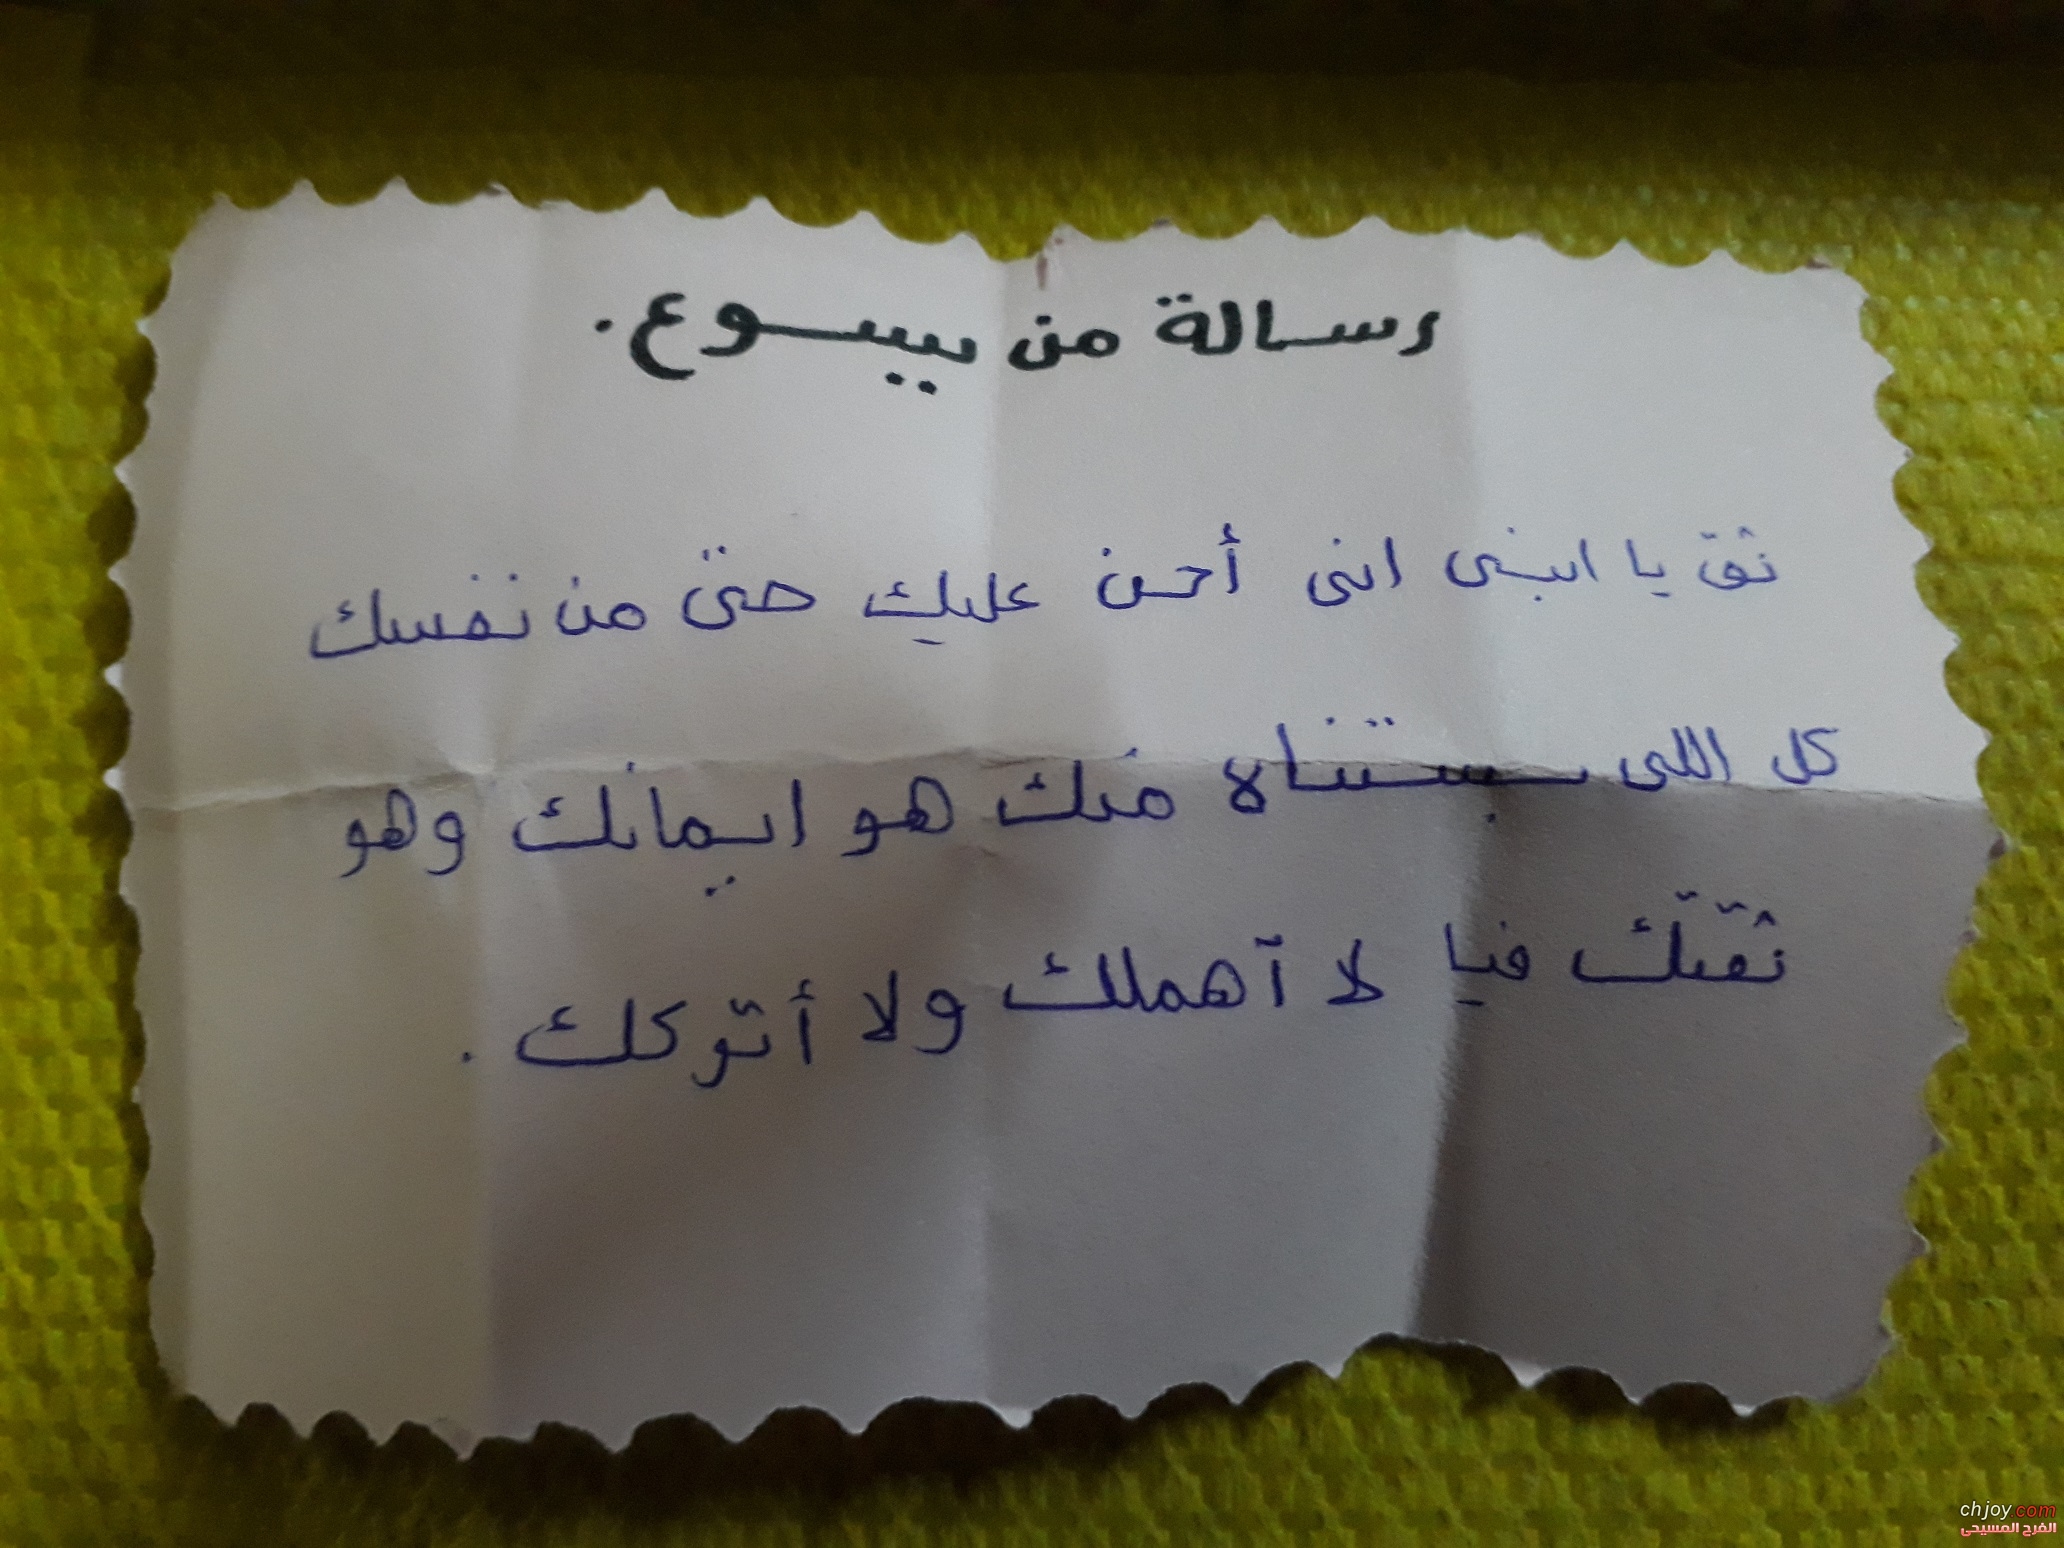 رسالة من يسوع.
ثق يا ابنى انى أحن عليك حتى من نفسك
كل اللى بستناه منك هو ايمانك وهو
ثقتك فيا لا آهملك ولا أتركك.
chjoy.com
الفرح المسيحى